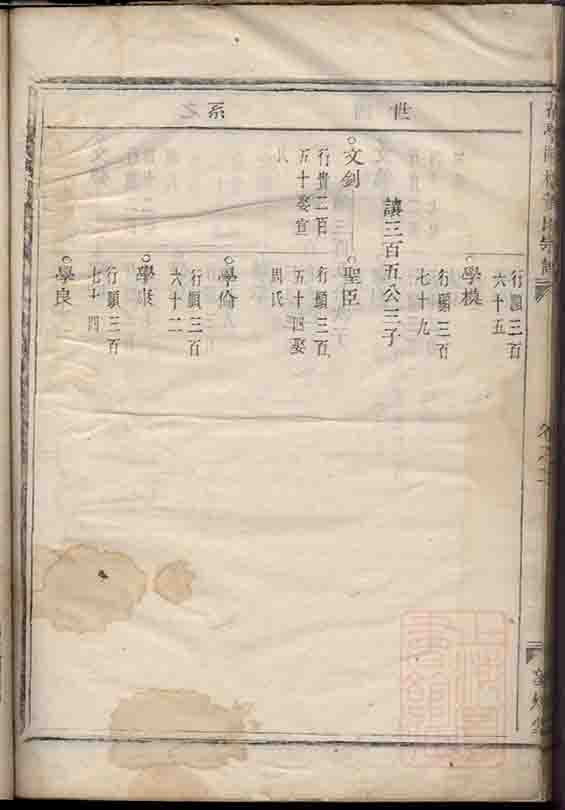 世系之
行顯三百
六十五
學模
行顯三百
七十九
讓三百五公三子
文釗
行貴二百
五十娶宣
氏
聖臣
行顯三百
五十四娶
周氏
學倫
行顯三百
六十二
學康
行顯三百
七十四
學良